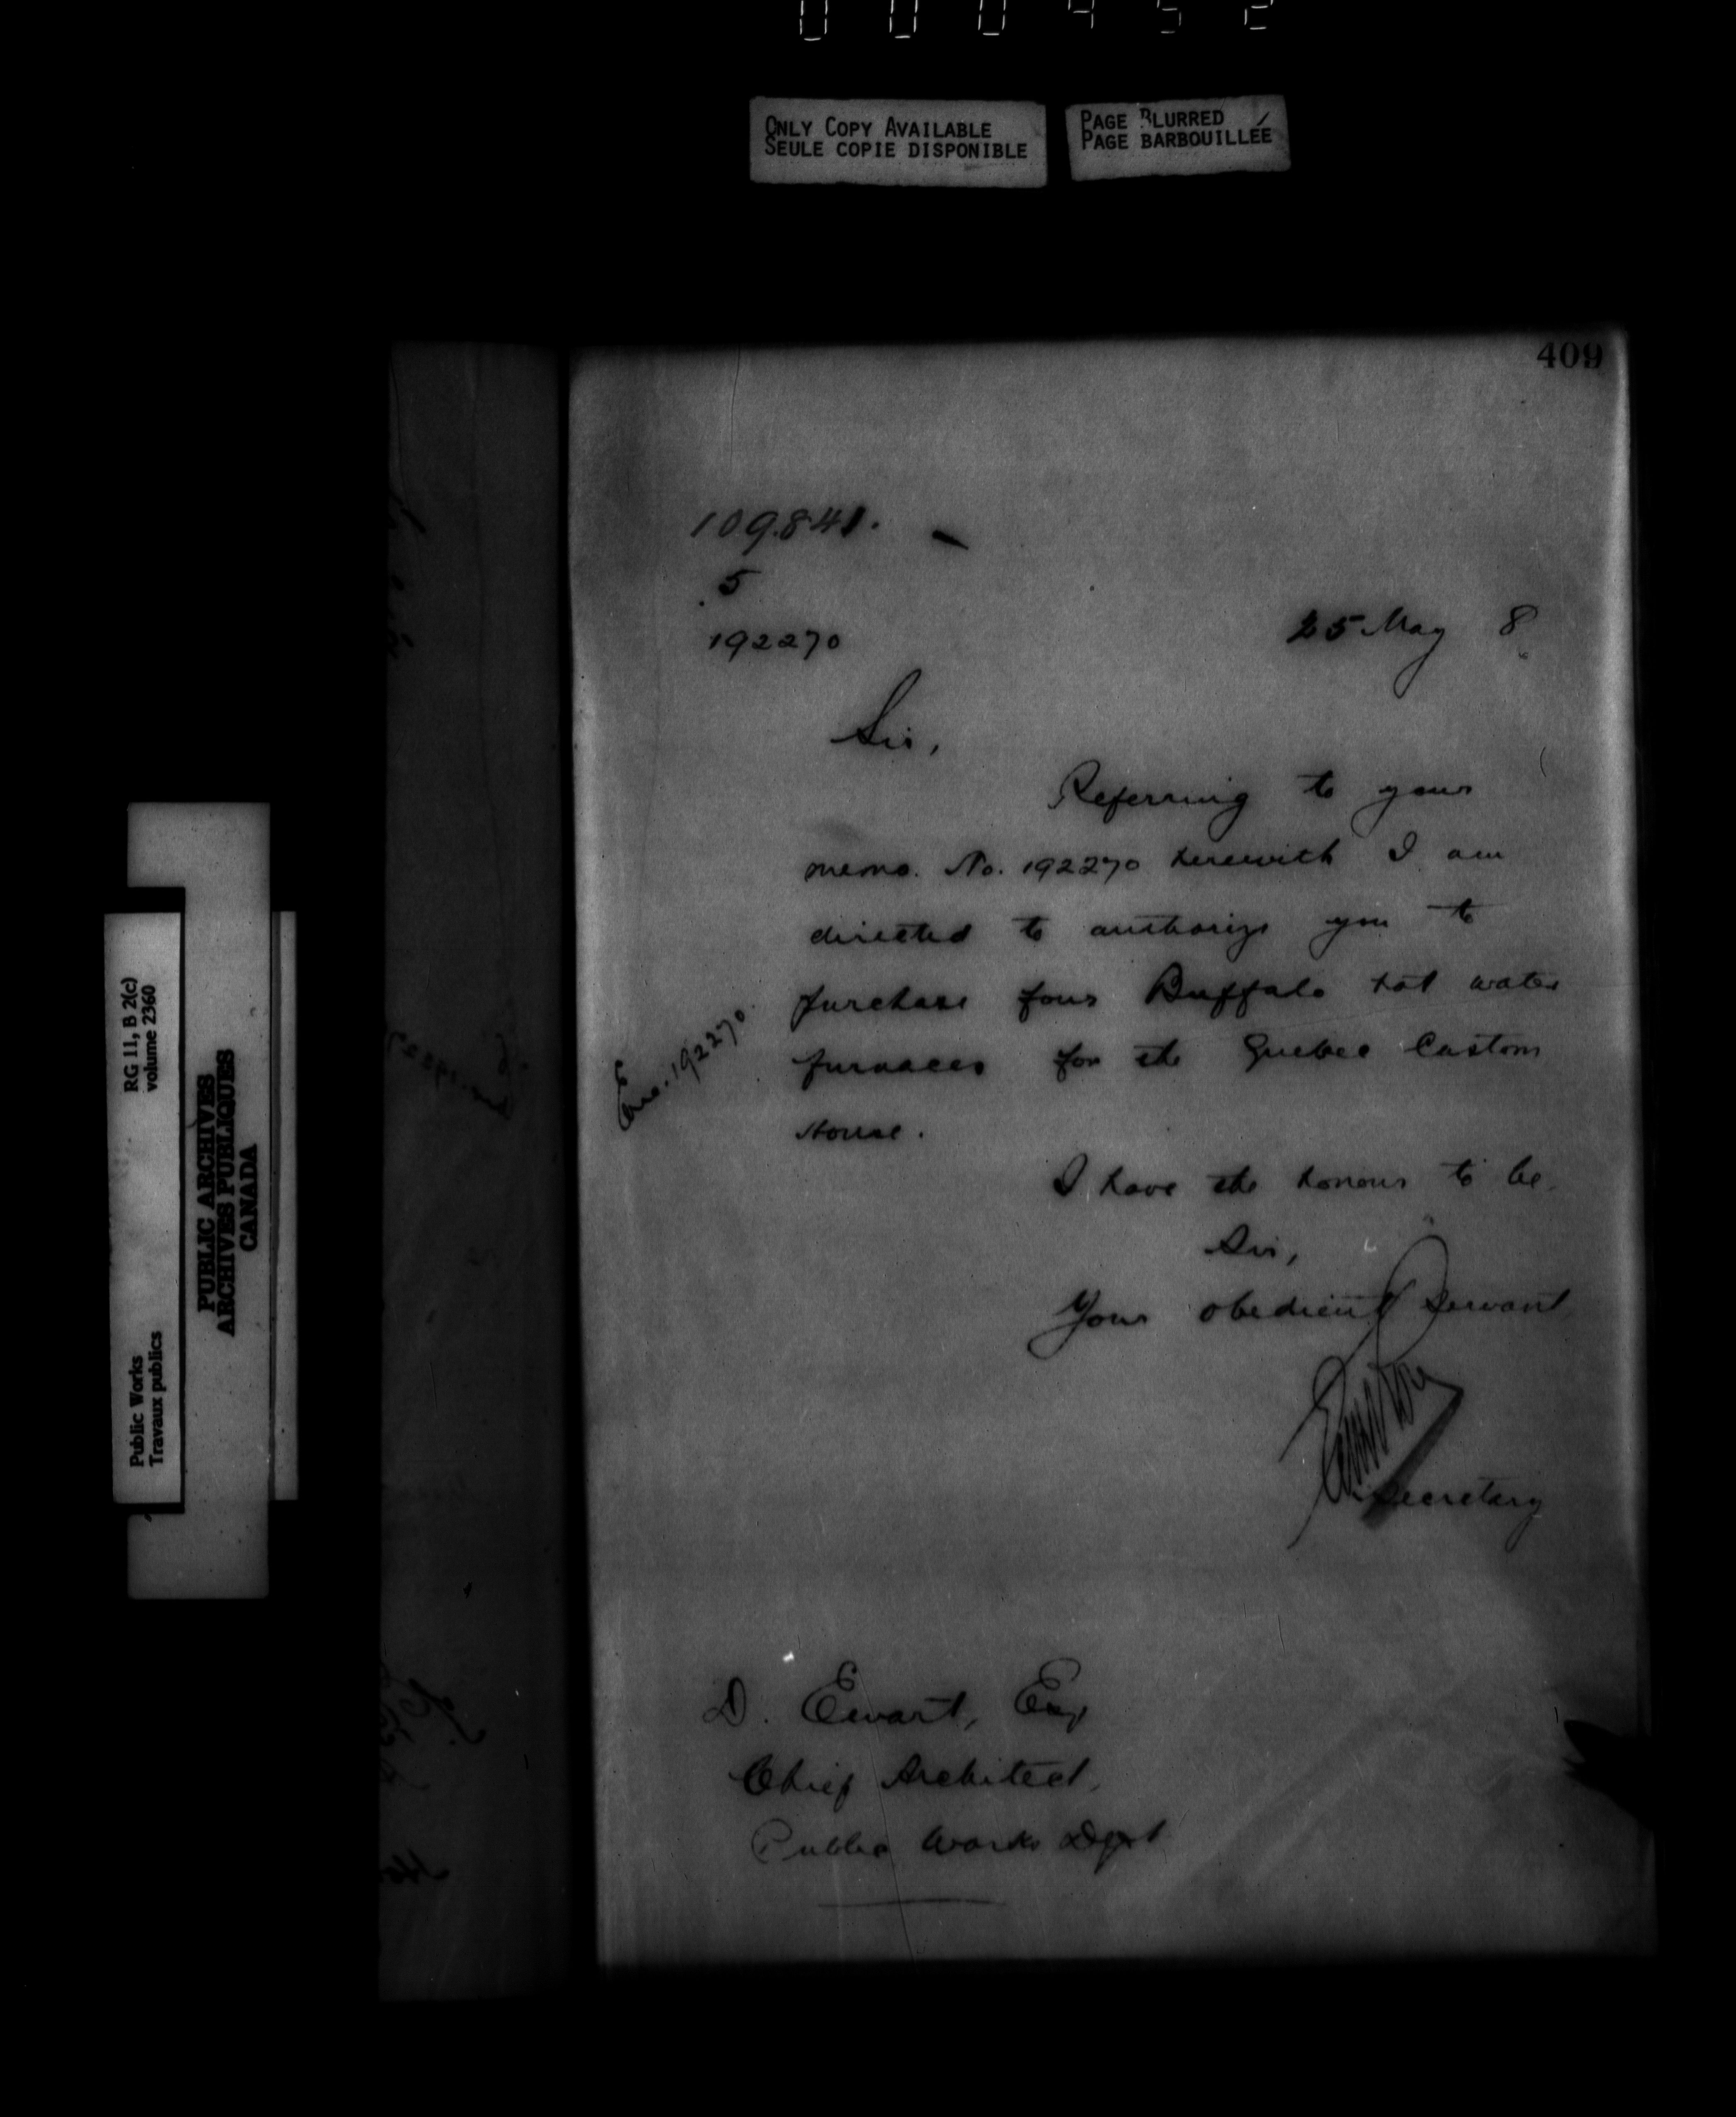 000452
ONLY COPY AVAILABLE
SEULE COPIE DISPONIBLE
PAGE BLURRED
PAGE BARBOUILLÉE
409
109.841.
5
192270
25 May 8
Sir,
Referring to your
memo. No. 192270 herewith I am
directed to authorize you to
purchase four Buffalo hot water
furnaces for the Quebec Custom
House.
Enc. 192270.
I have the honour to be
Sir,
Your obedient Servant
Secretary
D. Ewart, Esq
Chief Architect,
Public Works Dept
RG 11, B 2(c)
volume 2360
Public Works
Travaux publics
PUBLIC ARCHIVES
ARCHIVES PUBLIQUES
CANADA